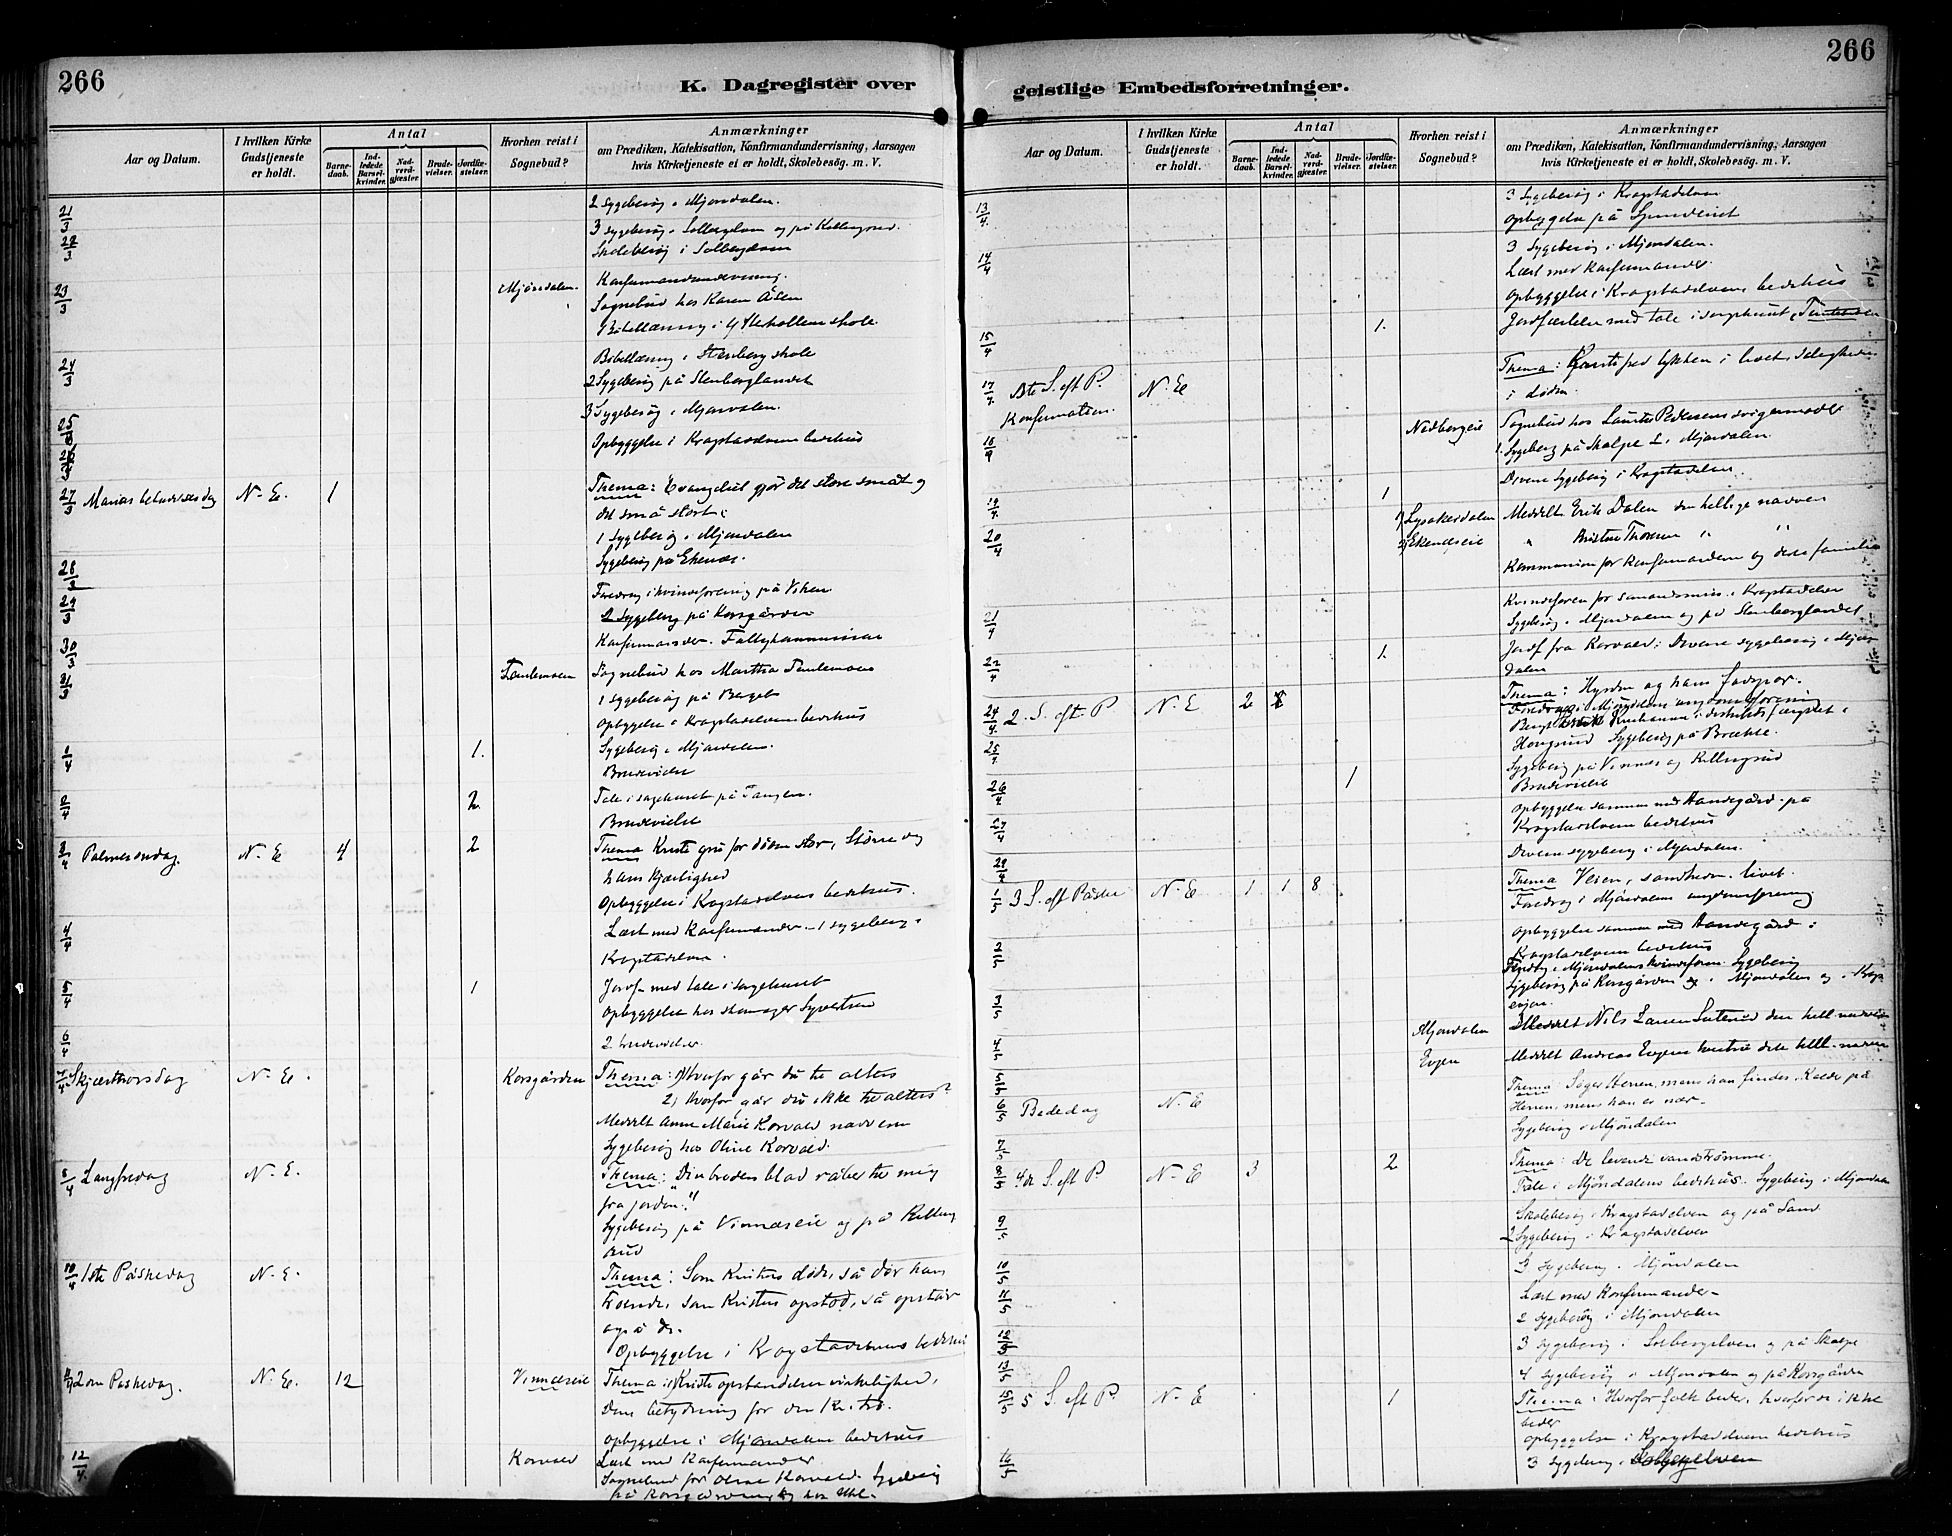 266
K. Dagregister over
Aar og Datum.
I hvilken Kirke Gudstjeneste er holdt.
Antal
Barnedaab.
Indledede Barselkvinder.
Nadverdgjæster.
Brudevielser.
Jordfæstelser.
Hvorhen reist i Sognebud?
Anmærkninger
om Prædiken, Katekisation, Konfirmandundervisning, Aarsagen
hvis Kirketjeneste ei er holdt, Skolebesög. m. V.
21/3 2 Sygebesøg i Mjøndalen.
22/3 3 Sygebesøg i Solbergelven og på
Skolebesøg i Solbergelven
23/3 Mjøndalen. Konfirmandundervisning.
Sognebud hos Karen Åsen
Bibellæsning i skole
24/3 Bibellæsning i Stenberg skole
2 Sygebesøg på Stenberglandet
3 Sygebesøg i Mjøndalen.
25/3 Opbyggelse i Krogstadelvens bedehus
27/3 Marias budskabsdag N. E. 1 Thema: Evangeliet gjør det store småt og
det små stort.
1 Sygebesøg i Mjøndalen
Sygebesøg på Ekenæs.
28/3
29/3 Foredrag i kvindeforening på Viken
2 Sygebesøg på Korsgården
30/3 Konfirmander. Fattigkommission
31/3 Sognebud hos Martha
1 sygebesøg på Berget
Opbyggelse i Krogstadelvens bedehus
1/4 1. Sygebesøg i Mjøndalen.
Brudevielse
2/4 2. Tale i sørgehuset på Tangen.
Brudevielse
3/4 Palmesøndag. N. E 4 2 Thema Kristi gru for døden stor, Større dog
hans Kjærlighed
Opbyggelse i Krogstadelvens bedehus.
4/4 Læst med Konfirmander. 1 sygebesøg i
Krogstadelven.
5/4 1 Jordf. med tale i sørgehuset
Opbyggelse hos skomager Syvertsen
6/4 2 brudevielser.
7/4 Skjærthorsdag N. E. Korsgården Thema: 1) Hvorfor går du til alters
2, Hvorfor går du ikke til alters?
Meddelt Anne Marie Korvald nadveren
Sygebesøg hos Oline Korvald.
8/4 Langfredag N. E. Thema: Din broders blod råber til mig
fra jorden."
Sygebesøg på Vinnæseie og på Killingrud
10/4 1ste Påskedag N. E. Thema: Som Kristus døde, så dør hans
troende, som Kristus opstod, så opstår
også de.
Opbyggelse i Krogstadelvens bedehus
11/4 2den Påskedag. N. E. 12 Vinnæseie Thema: Kristi opstandelses virkelighed,
Dens betydning for den Kr. tro.
Opbyggelse i Mjøndalens bedehus
12/4 Korvald Læst med Konfirmander
Sognebud for Oline Korvald. Sygebesøg
på Korsgården og hos
266
geistlige Embedsforretninger.
Aar og Datum.
I hvilken Kirke Gudstjeneste er holdt.
Antal
Barnedaab.
Indledede Barselkvinder.
Nadverdgjæster.
Brudevielser.
Jordfæstelser.
Hvorhen reist i Sognebud?
Anmærkninger
om Prædiken, Katekisation, Konfirmandundervisning, Aarsagen
hvis Kirketjeneste ei er holdt, Skolebesög. m. V.
13/4 3 Sygebesøg i Krogstadelven
Opbyggelse på
14/4 3 Sygebesøg i Mjøndalen.
Læst med Konfirmander
Opbyggelse i Krogstadelvens bedehus
15/4 1. Jordfæstelse med tale i sørgehuset
17/4 1ste S. eft P. Konfirmation. N. E Thema: lykken i livet, saligheden
i døden.
18/4 Nedbergeie Sognebud hos Laurits Pedersens svigermoder
Sygebesøg på Skalpe 2 i Mjøndalen.
Diverse Sygebesøg i Krogstadelven.
19/4 1
20/4 1) Lysakerdalen Meddelt Erik Dalen den hellige nadver
2) Ekenæseie " Kristine Thoresen "
Kommunion for Konfirmanderne og deres familie
21/4 Kvindeforen for sømandsmis. i Krogstadelven
Sygebesøg i Mjøndalen og på Stenberglandet
22/4 1. Jordf fra Korvald; Diverse sygebesøg i Mjøndalen
24/4 2. S. eft. P N. E 2 Thema: Hyrden og hans fodspor.
Foredrag i Mjøndalens ungdomsforening
25/4 Hongsund Sygebesøg på Brække.
26/4 1 Sygebesøg på Vinnæs og Killingrud
Brudevielse
27/4 Opbyggelse sammen med Aandegård på
Krogstadelvens bedehus
28/4 Diverse sygebesøg i Mjøndalen.
1/5 3 S. eft Påske N. E 1 1 8 Thema Veien, sandheden, livet.
Foredrag i Mjøndalens ungdomsforening.
2/5 Opbyggelse sammen med Aandegård i
Krogstadelvens bedehus
3/5 Foredrag i Mjøndalens kvindeforen. Sygebesøg
Sygebesøg på Korsgården og i Mjøndalen og i
4/5 Mjøndalen Meddelt Nils Larsen den hell nadver
Evjen Meddelt Andreas Evjens hustru den hell. nadver
5/5
6/5 Bededag N. E Thema: Søger Herren, mens han findes, Kalder på
Herren, mens han er nær.
7/5 Sygebesøg i Mjøndalen
8/5 4de S. eft P. N. E 3 2 Thema: De levende vandstrømme.
Tale i Mjøndalens bedehus. Sygebesøg i Mjøndalen
9/5 Skolebesøg i Krogstadelven og på Sand.
2 Sygebesøg i Krogstadelven
10/5 3 Sygebesøg i Mjøndalen
11/5 Læst med Konfirmander
2 Sygebesøg i Mjøndalen
12/5 3 Sygebesøg i Solbergelven og på Skalpe
13/5 4 Sygebesøg i Mjøndalen og på Korsgården
15/5 5 S. eft P. N. E 1 Thema: Hvorfor folk beder, hvorfor vi ikke
beder
Opbyggelse i Krogstadelvens bedehus
16/5 3 Sygebesøg i Solbergelven